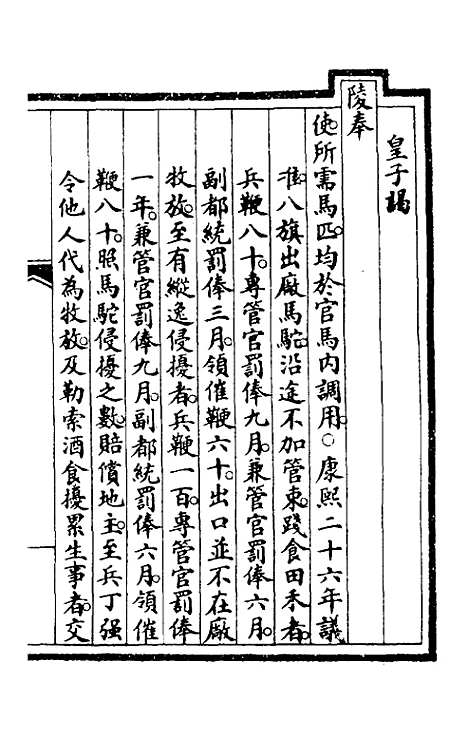 皇子謁
陵奉
使所需馬匹均於官馬内調用○康熙二十六年議
准八旗出廠馬駝沿途不加管束踐食田禾者
兵鞭八十專管官罰俸九月兼管官罰俸六月
副都統罰俸三月領催鞭六十出口並不在廠
牧放至有縱逸侵擾者兵鞭一百專管官罰俸
一年兼管官罰俸九月副都統罰俸六月領催
鞭八十照馬駝侵擾之數賠償地主至兵丁强
令他人代為牧放及勒索酒食擾累生事者交